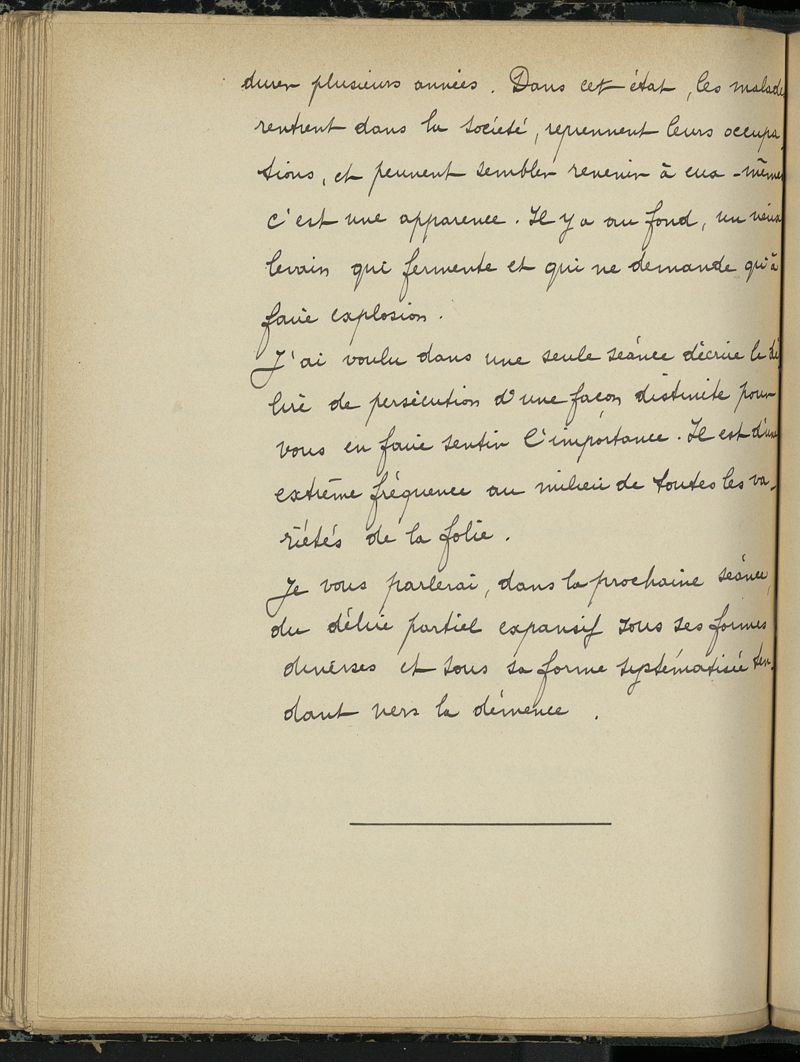 durer plusieurs années. Dans cet état, les malade
rentrent dans la société, reprennent leurs occupa
tions, et peuvent sembler revenir à eux-mêmes
c'est une apparence. Il y a au fond, un vieux
levain qui fermente et qui ne demande qu'à
faire explosion.
J'ai voulu dans une seule séance décrire le dé
lire de persécution d'une façon distincte pour
vous en faire sentir l'importance. Il est d'une
extrême fréquence au milieu de toutes les va-
riétés de la folie.
Je vous parlerai, dans la prochaine séance,
du délire partiel expansif sous ses formes
diverses et sous sa forme systématisée ten-
dant vers la démence.